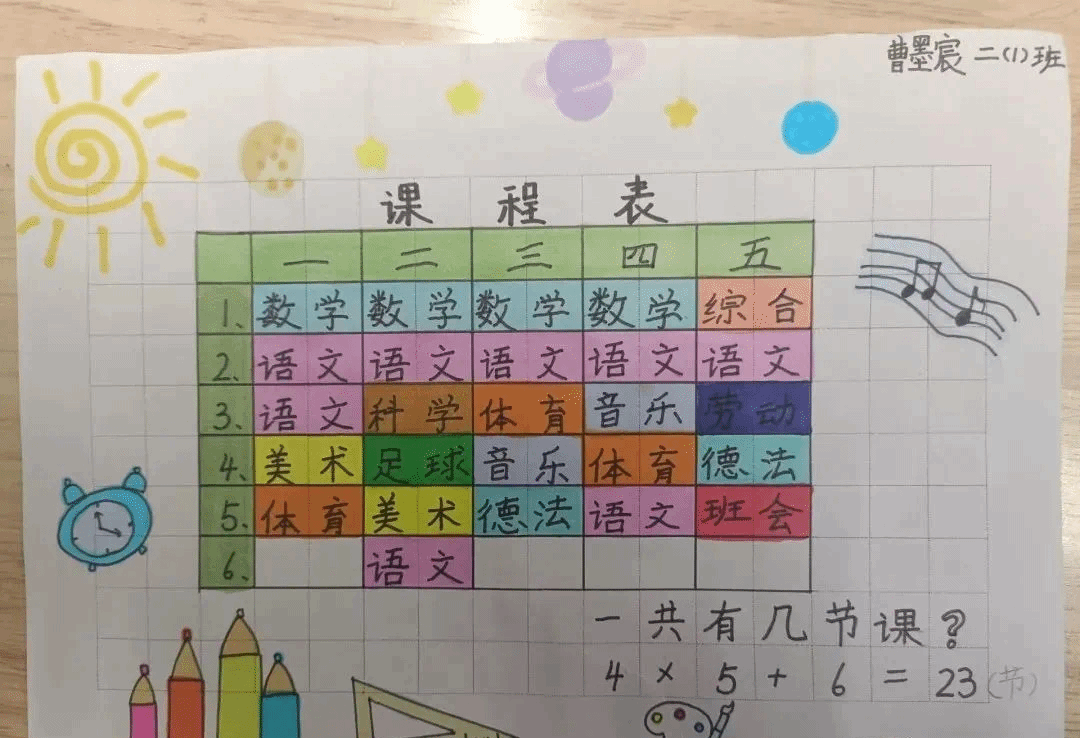 曹墨宸 二(1)班
课程表
一 二 三 四 五
1、 数学 数学 数学 数学 综合
2、 语文 语文 语文 语文 语文
3、 语文 科学 体育 音乐 劳动
4、 美术 足球 音乐 体育 德法
5、 体育 美术 德法 语文 班会
6、 语文
一共有几节课?
4×5+6=23(节)